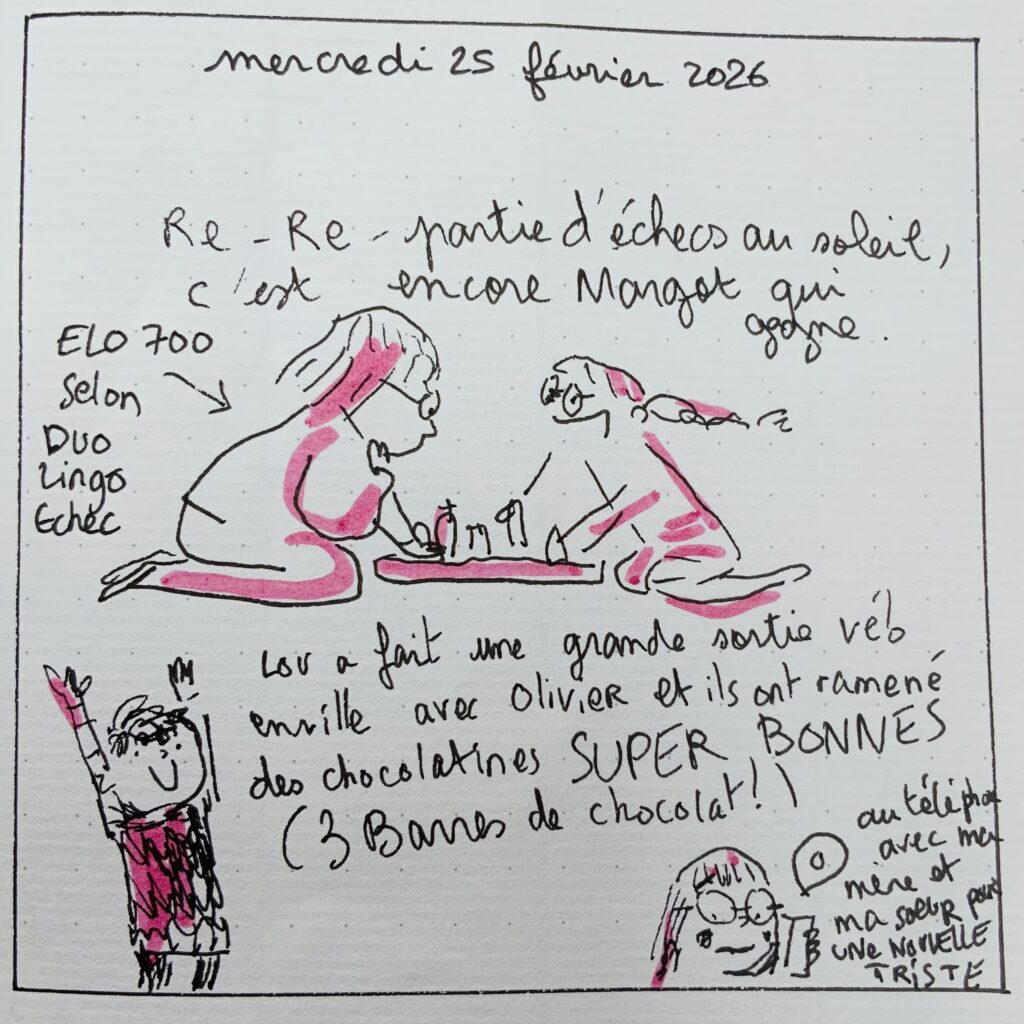 mercredi 25 février 2026
Re - Re - partie d'échecs au soleil,
c'est encore Margot qui
gagne.
ELO 700
selon
DUO
Lingo
Echec
Lou a fait une grande sortie vélo
en ville avec Olivier et ils ont ramené
des chocolatines SUPER BONNES
(3 Barres de chocolat !)
au téléphone
avec ma
mère et
ma soeur pour
UNE NOUVELLE
TRISTE